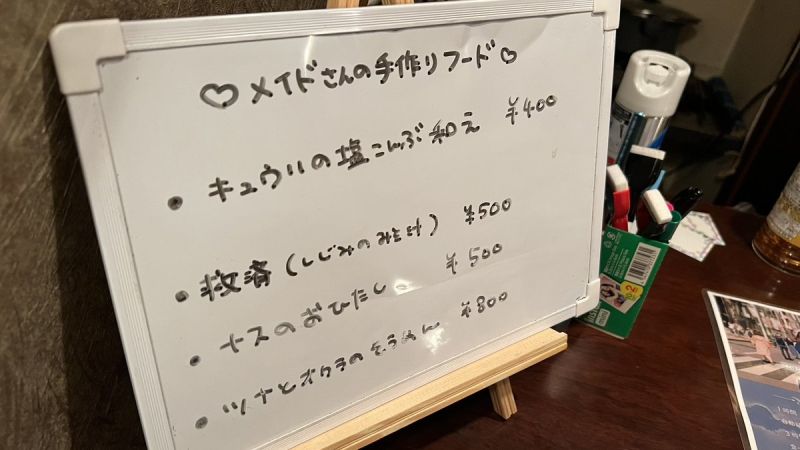 ♡メイドさんの手作りフード♡
・キュウリの塩こんぶ和え ¥400
・救済(しじみのみそ汁) ¥500
・ナスのおひたし ¥500
・ツナとオクラのそうめん ¥800